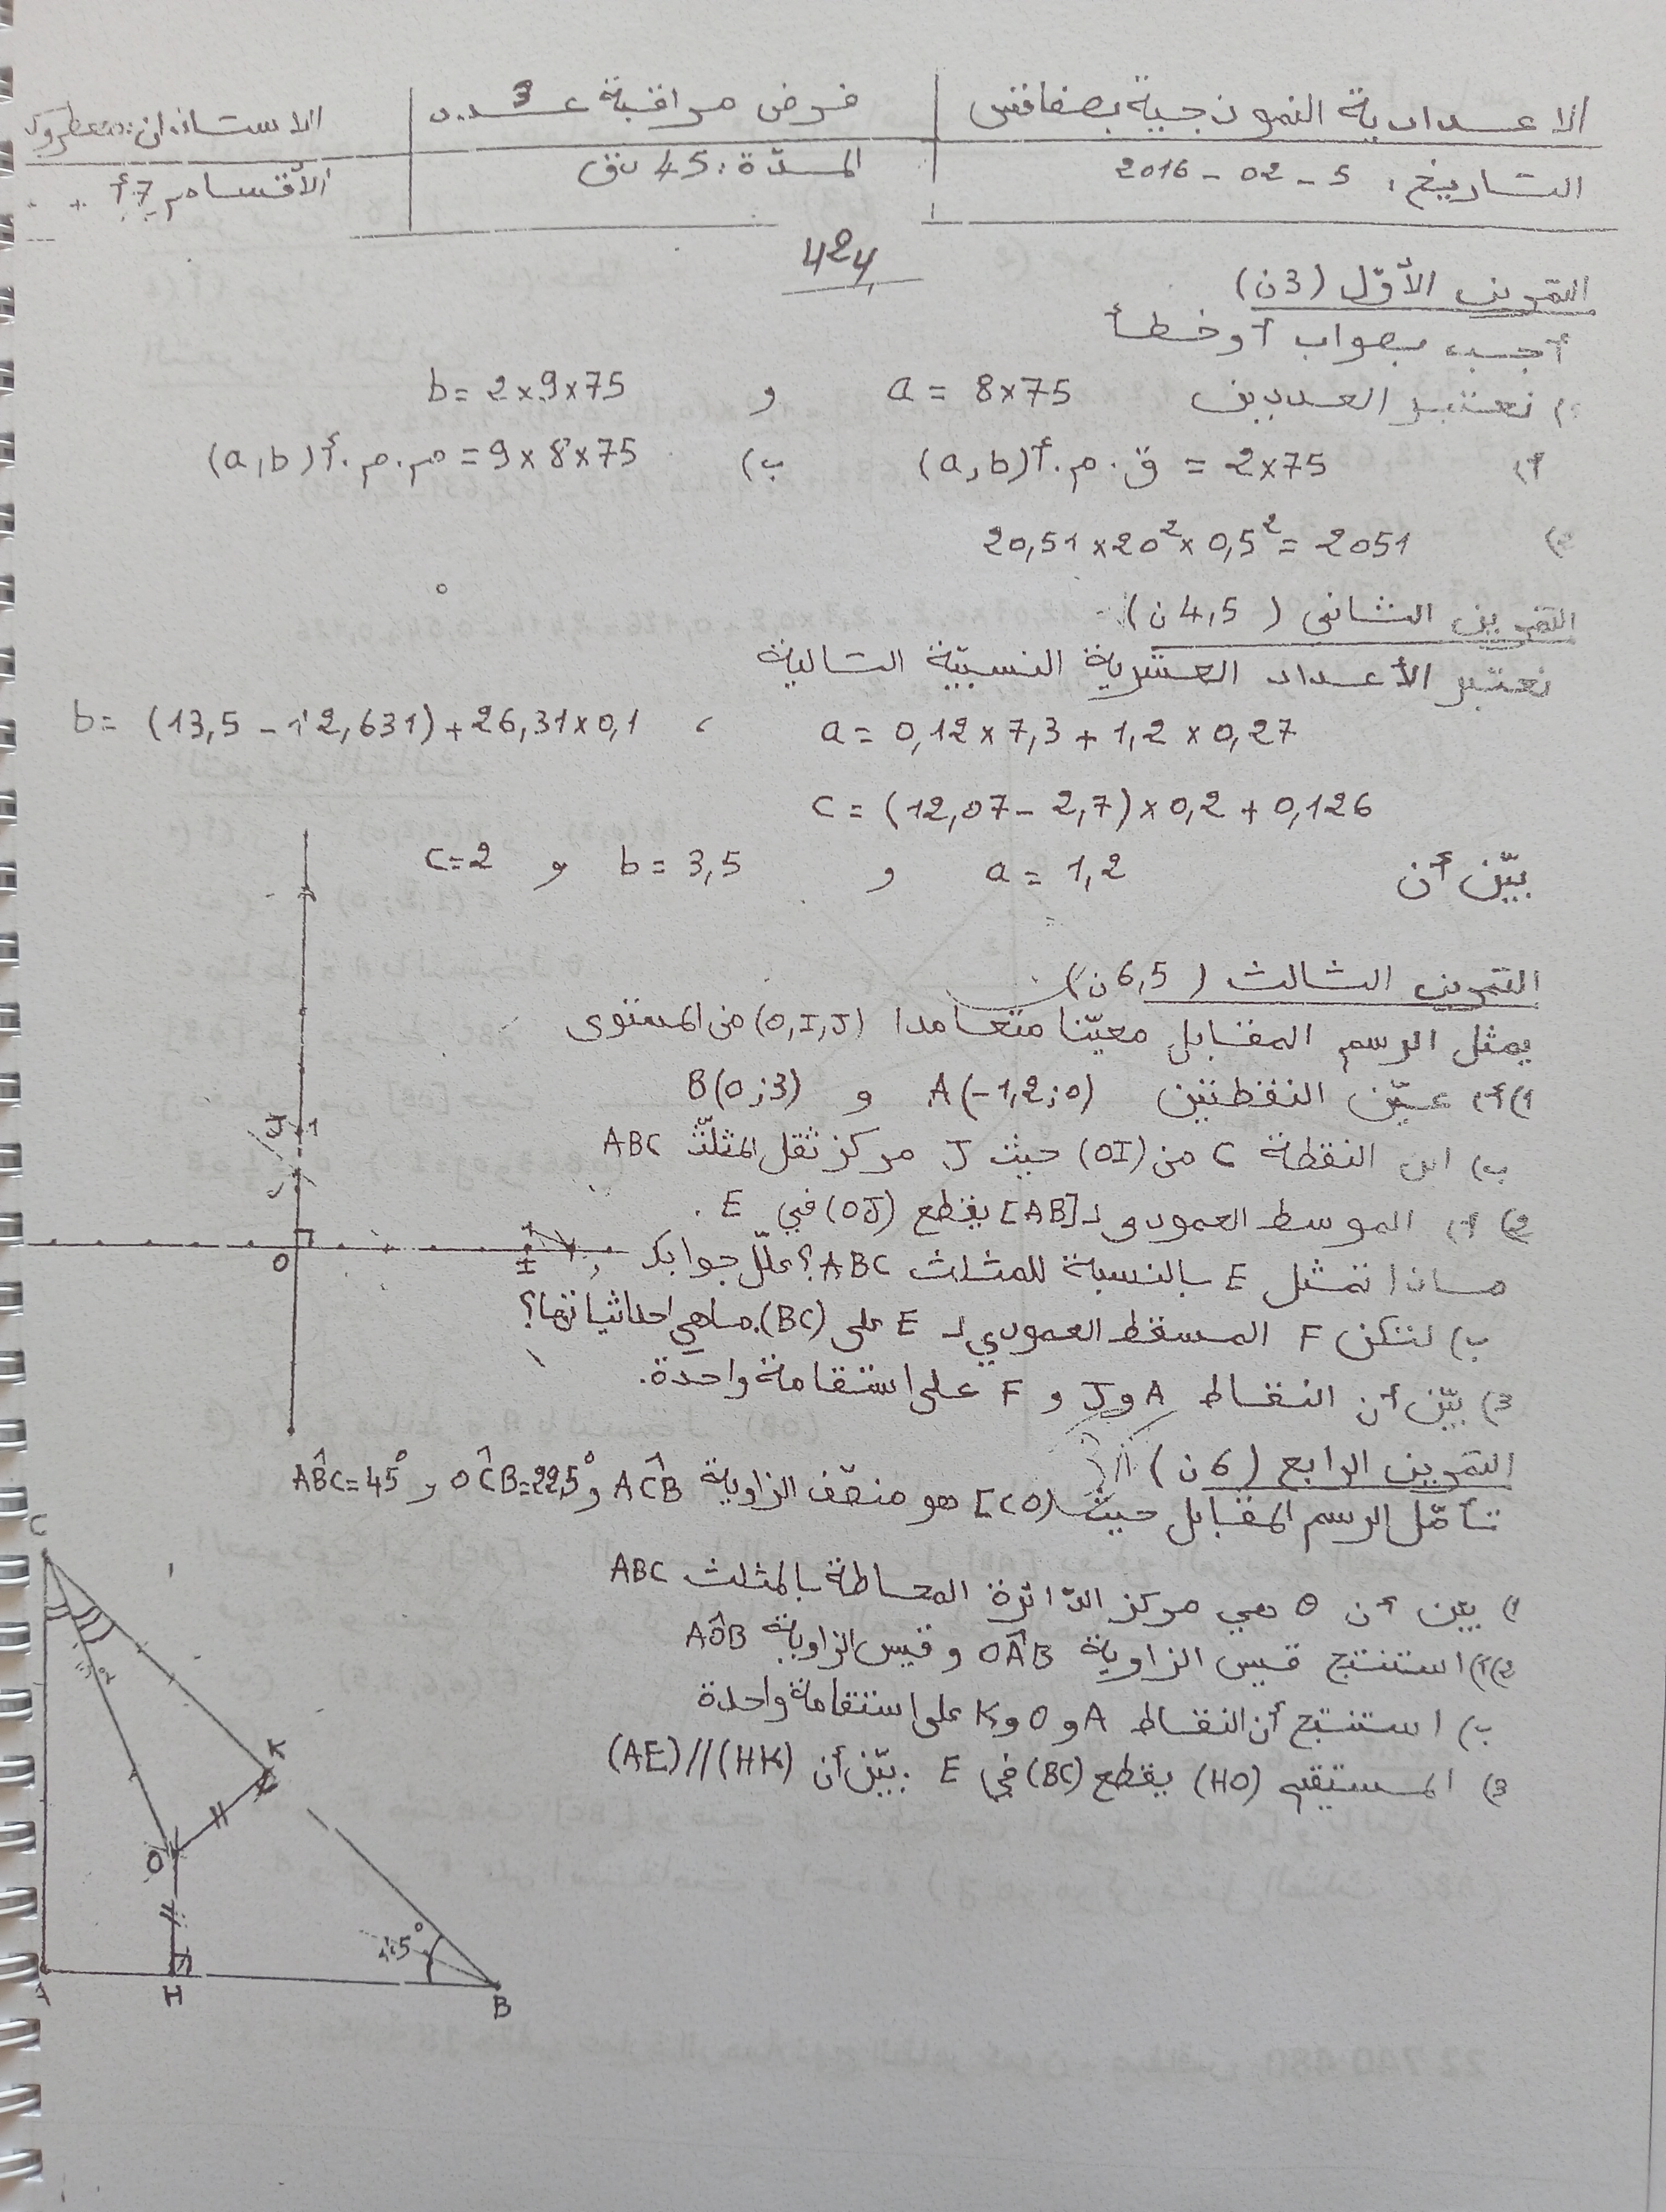 الاعدادية النموذجية بصفاقس
فرض مراقبة عـ3ـدد
الاستاذان:
التاريخ: 5 - 02 - 2016
المدّة: 45 دق
الأقسام 7أ
424
التمرين الأوّل (3ن)
أجب بصواب أو خطأ
1) نعتبر العددين a = 8x75 و b = 2x9x75
أ) ق.م.أ(a,b) = 2x75 ب) م.م.أ(a,b) = 9x8x75
2) 20,51 x 20² x 0,5² = 2051
التمرين الثاني (4,5 ن)
نعتبر الأعداد العشرية النسبيّة التالية
a = 0,12 x 7,3 + 1,2 x 0,27 ، b = (13,5 - 12,631) + 26,31 x 0,1
c = (12,07 - 2,7) x 0,2 + 0,126
بيّن أن a = 1,2 و b = 3,5 و c = 2
التمرين الثالث (6,5 ن)
يمثل الرسم المقابل معيّنا متعامدا (O,I,J) من المستوى
1) أ) عيّن النقطتين A(-1,2;0) و B(0;3)
ب) ابن النقطة C من (OI) حيث J مركز ثقل المثلّث ABC
2) أ) الموسط العمودي لـ [AB] يقطع (OJ) في E .
ماذا تمثل E بالنسبة للمثلث ABC ؟ علّل جوابك
ب) لتكن F المسقط العمودي لـ E على (BC). ما هي احداثياتها؟
3) بيّن أن النقاط A و J و F على استقامة واحدة.
J 1
O
I
التمرين الرابع (6 ن)
تأمّل الرسم المقابل حيث [CO) هو منصّف الزاوية AĈB و OĈB = 22,5° و AB̂C = 45°
1) بيّن أن O هي مركز الدّائرة المحاطة بالمثلث ABC
2) أ) استنتج قيس الزاوية OÂB وقيس الزاوية AÔB
ب) استنتج أن النقاط A و O و K على استقامة واحدة
3) المستقيم (HO) يقطع (BC) في E . بيّن أن (AE)//(HK)
C
K
O
45°
A
H
B